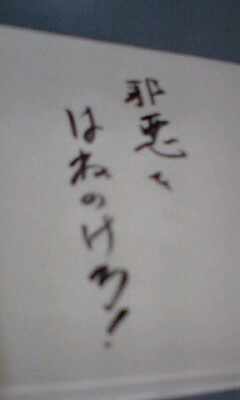 邪悪を
はねのけろ!